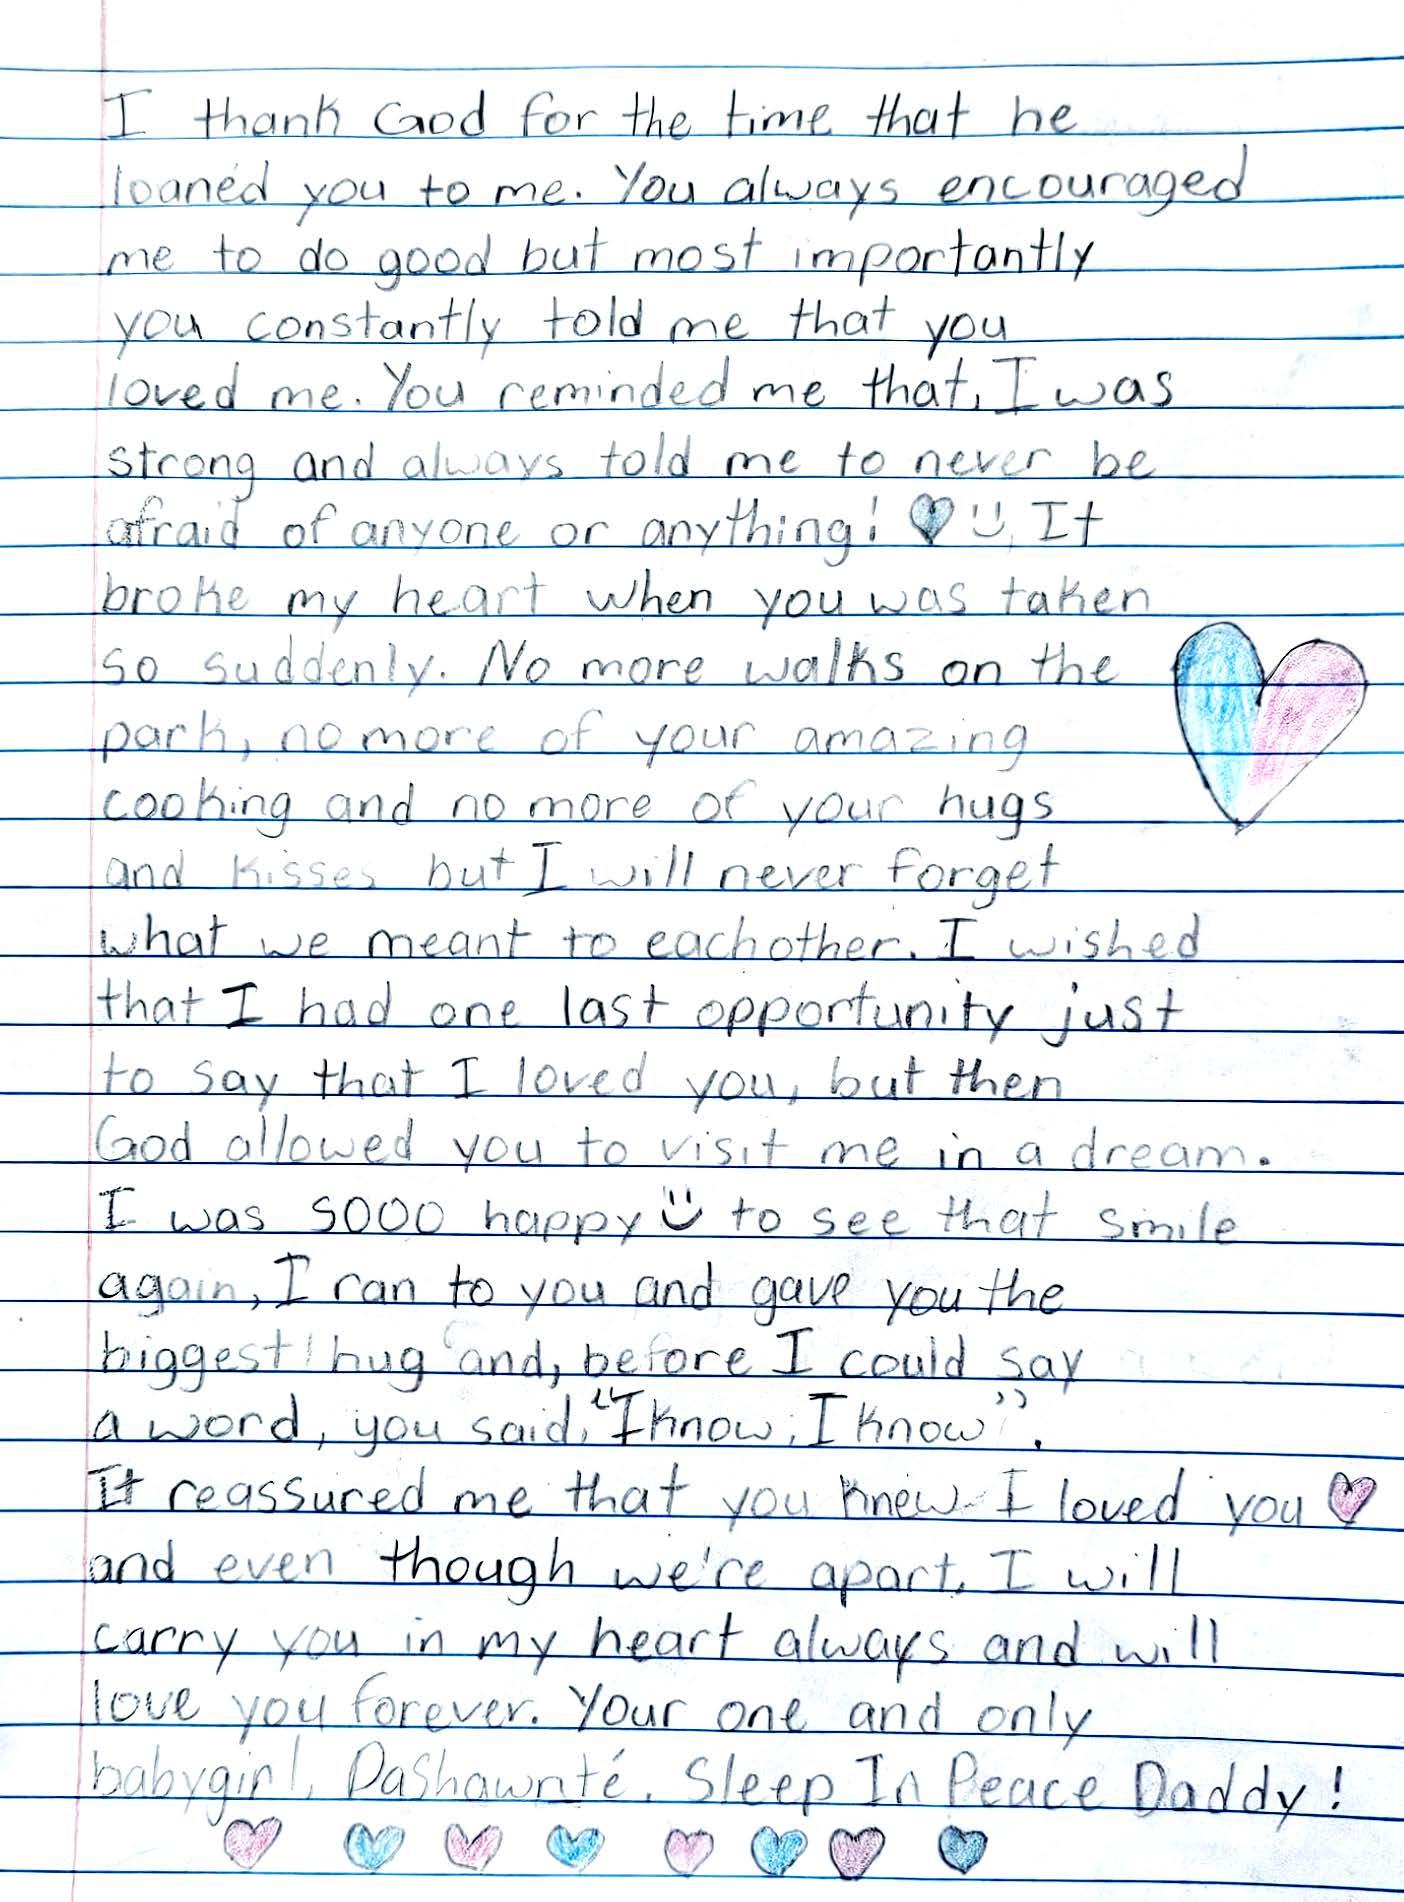 I thank God for the time that he
loaned you to me. You always encouraged
me to do good but most importantly
you constantly told me that you
loved me. You reminded me that, I was
strong and always told me to never be
afraid of anyone or anything! ♥ :) It
broke my heart when you was taken
so suddenly. No more walks on the
park, no more of your amazing
cooking and no more of your hugs
and kisses but I will never forget
what we meant to eachother. I wished
that I had one last opportunity just
to say that I loved you, but then
God allowed you to visit me in a dream.
I was sooo happy :) to see that smile
again, I ran to you and gave you the
biggest hug and, before I could say
a word, you said, "I know, I know".
It reassured me that you knew I loved you ♥
and even though we're apart, I will
carry you in my heart always and will
love you forever. Your one and only
babygirl, DaShawnté. Sleep In Peace Daddy!